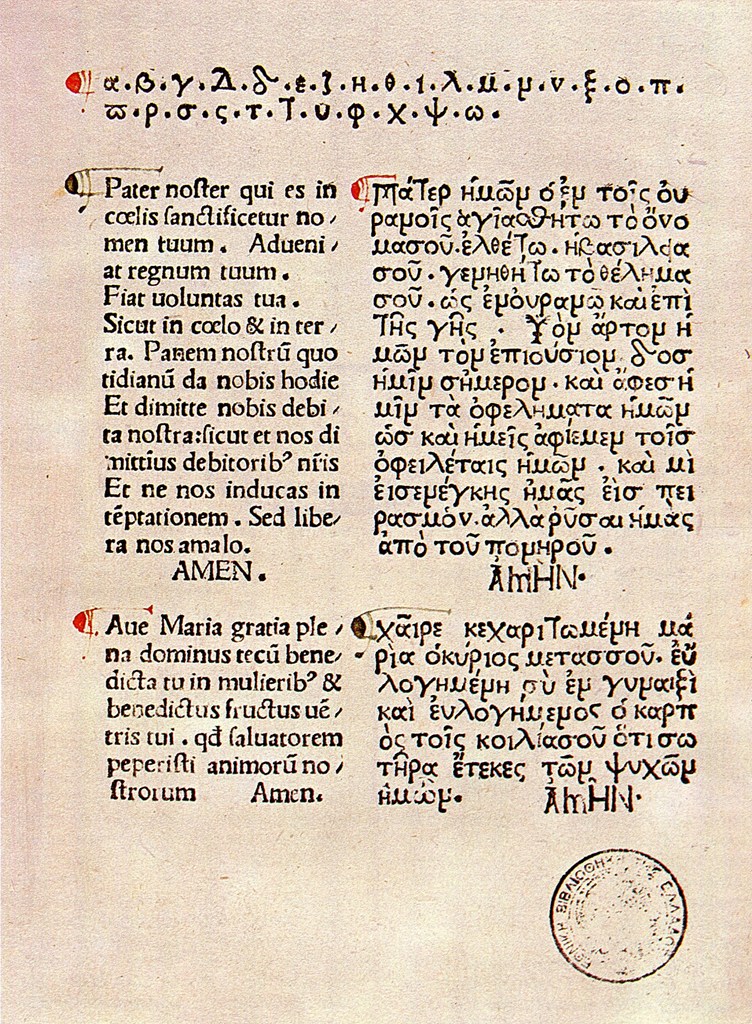 α . β . γ . Δ . δ . ε . ζ . η . θ . ι . λ . μ . μ . ν . ξ . ο . π .
ϖ . ρ . σ . ς . τ . Ϊ . υ . φ . χ . ψ . ω .
Pater noster qui es in
cœlis sanctificetur no
men tuum . Adueni /
at regnum tuum .
Fiat uoluntas tua .
Sicut in cœlo & in ter /
ra. Panem nostrū quo
tidianū da nobis hodie
Et dimitte nobis debi /
ta nostra:sicut et nos di
mittius debitoribꝰ nr̄is
Et ne nos inducas in
tēptationem . Sed libe/
ra nos amalo.
AMEN .
Πάτερ ἡμῶν ὁ ἐν τοῖς ὀυ
ρανοῖς ἁγιασθήτω τὸ ὄνο
μασοῦ.ἐλθέτω . ἡβασιλεία
σοῦ . γενηθήτω τὸ θέλημα
σοῦ . ὡς ἐνὀυρανω καὶ ἐπὶ
τῆς γῆς . Τὸν ἄρτον ἡ
μῶν τὸν ἐπιούσιον δοσ
ἡμῖν σήμερον . καὶ ἄφεσ ἡ
μῖν τὰ ὀφελήματα ἡμῶν
ὡσ καὶ ἡμεῖς ἀφίεμεν τοῖσ
ὀφειλέταις ἡμῶν . καὶ μὶ
εἰσενέγκης ἡμᾶς ἐίσ πει
ρασμὸν.ἀλλὰ ῥῦσαι ἡμᾶς
ἀπὸ τοῦ πονηροῦ .
ἈΜῊΝ·
Aue Maria gratia ple /
na dominus tecū bene/
dicta tu in mulieribꝰ &
benedictus fructus uē /
tris tui . qđ saluatorem
peperisti animorū no /
strorum Amen.
χαῖρε κεχαριτωμένη μα
ρία ὁκύριος μετασσοῦ. ἐυ
λογημένη σὺ ἐν γυναιξὶ
καὶ ἐυλογήμενος ὁ καρπ
ὸς τοῖς κοιλίασοῦ ὅτι σω
τῆρα ἔτεκες τῶν ψυχῶν
ἡμῶν. ἈΜῊΝ·
ΕΘΝΙΚΗ ΒΙΒΛΙΟΘΗΚΗ ΤΗΣ ΕΛΛΑΔΟΣ